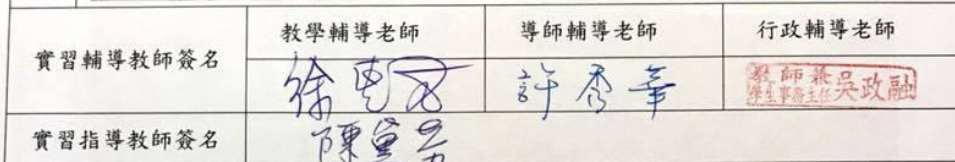 實習輔導教師簽名
教學輔導老師 導師輔導老師 行政輔導老師
許秀華
教師兼
學生事務主任 吳政融
實習指導教師簽名